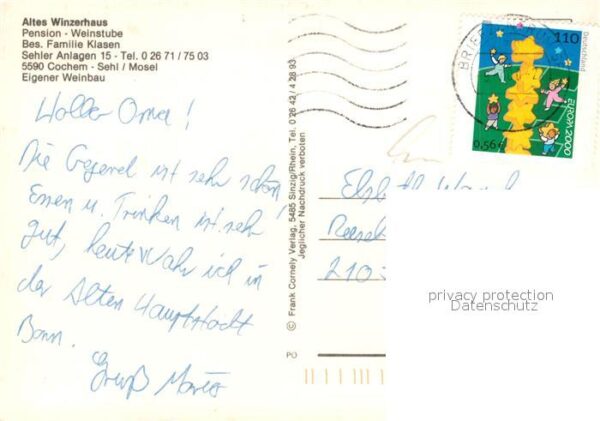 Altes Winzerhaus
Pension - Weinstube
Bes. Familie Klasen
Sehler Anlagen 15 - Tel. 0 26 71 / 75 03
5590 Cochem - Sehl / Mosel
Eigener Weinbau
Hallo Oma!
Die Gegend ist sehr schön!
Essen u. Trinken ist sehr
gut, heute war ich in
der Alten Hauptstadt
Bonn.
Gruß
© Frank Cornely Verlag, 5485 Sinzig/Rhein, Tel. 0 26 42 / 4 28 93
Jeglicher Nachdruck verboten
PO
BRIEF
110
Deutschland
0,56 €
EUROPA 2000
210
privacy protection
Datenschutz